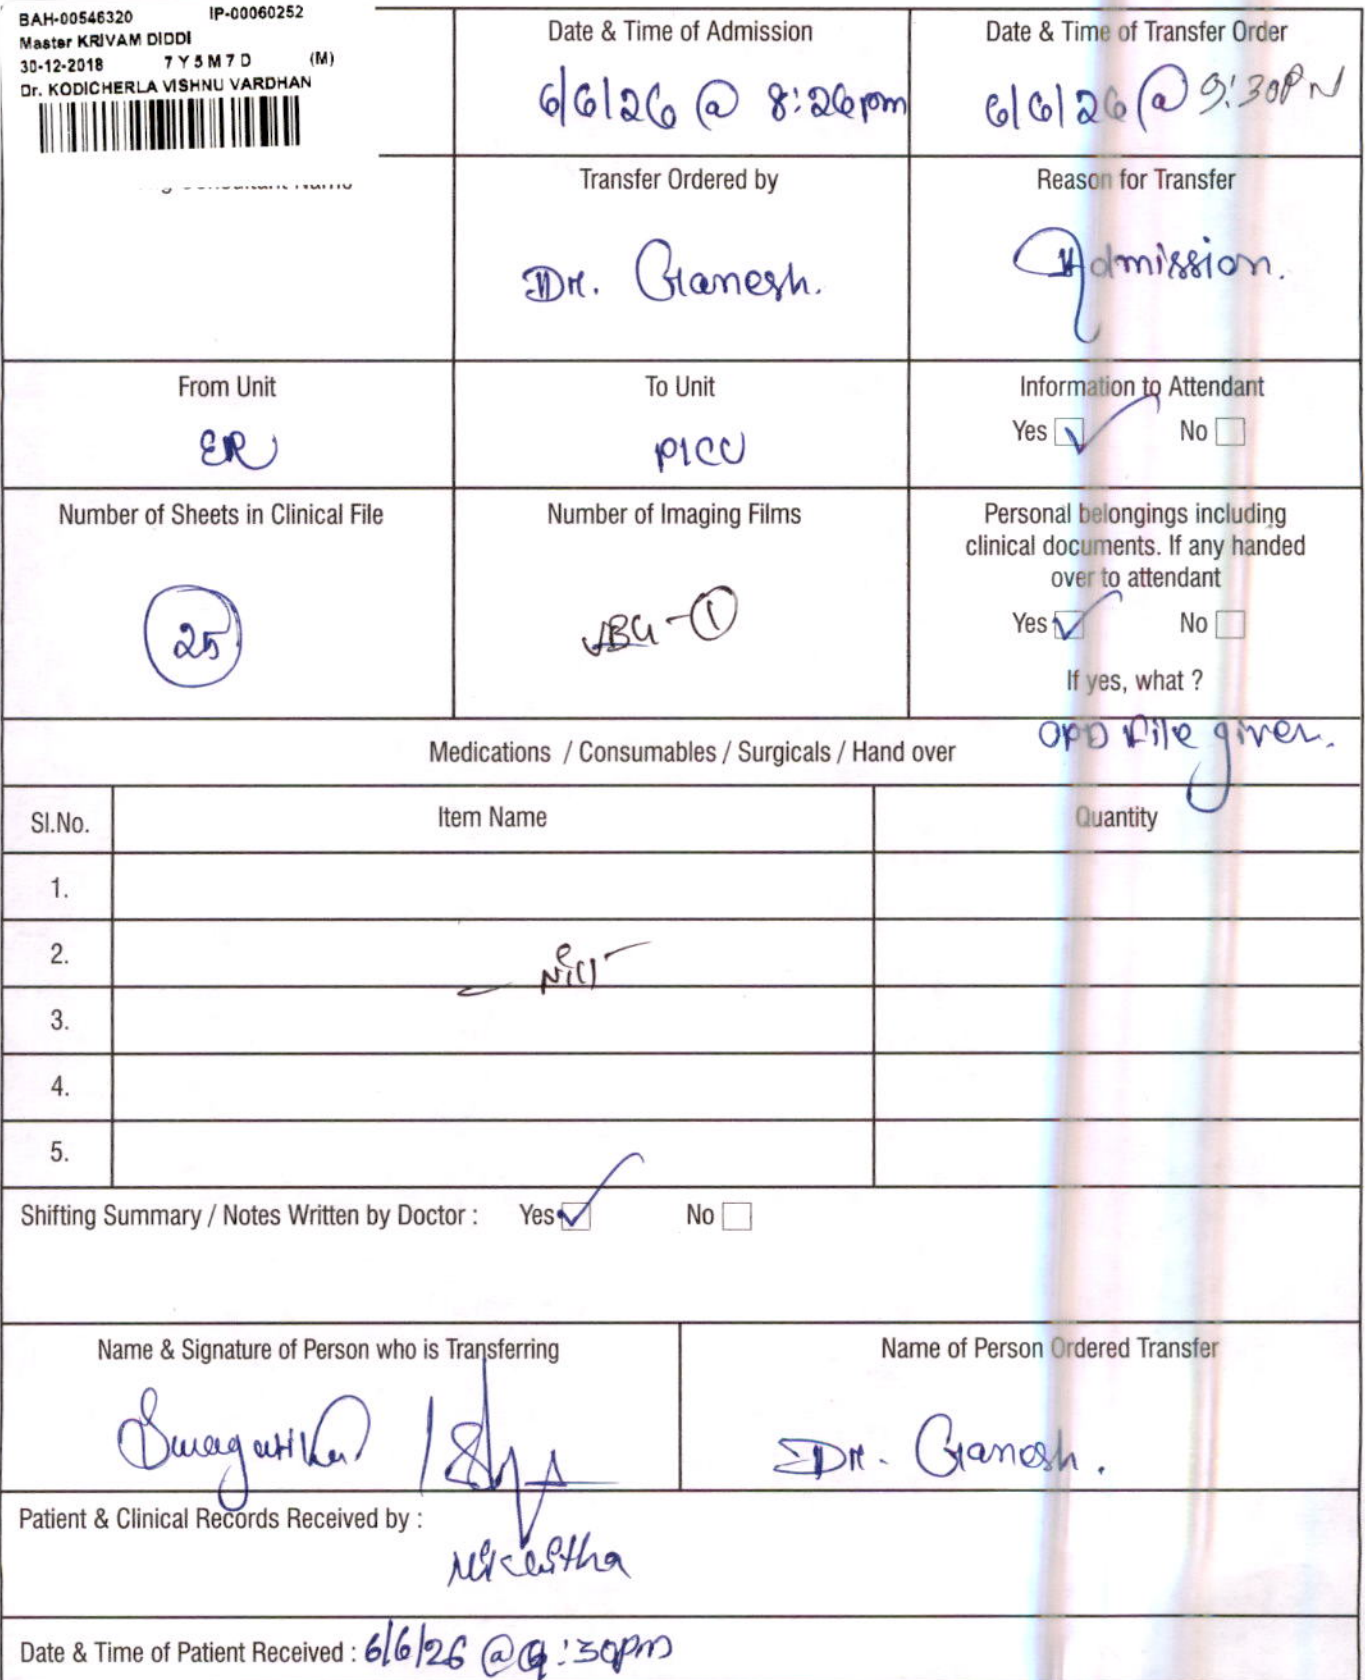 BAH-00546320 IP-00060252
Master KRIVAM DIDDI
30-12-2018 7 Y 5 M 7 D (M)
Dr. KODICHERLA VISHNU VARDHAN
Date & Time of Admission
6/6/26 @ 8:26pm
Date & Time of Transfer Order
6/6/26 @ 9:30PM
Transfer Ordered by
Dr. Ganesh.
Reason for Transfer
Admission.
From Unit
ER
To Unit
PICU
Information to Attendant
Yes No
Number of Sheets in Clinical File
25
Number of Imaging Films
VBG - 1
Personal belongings including
clinical documents. If any handed
over to attendant
Yes No
If yes, what ?
OPD File given.
Medications / Consumables / Surgicals / Hand over
Sl.No. Item Name Quantity
1.
2. Nill
3.
4.
5.
Shifting Summary / Notes Written by Doctor : Yes No
Name & Signature of Person who is Transferring
Name of Person Ordered Transfer
Dr. Ganesh.
Patient & Clinical Records Received by :
Date & Time of Patient Received : 6/6/26 @ 9:30pm